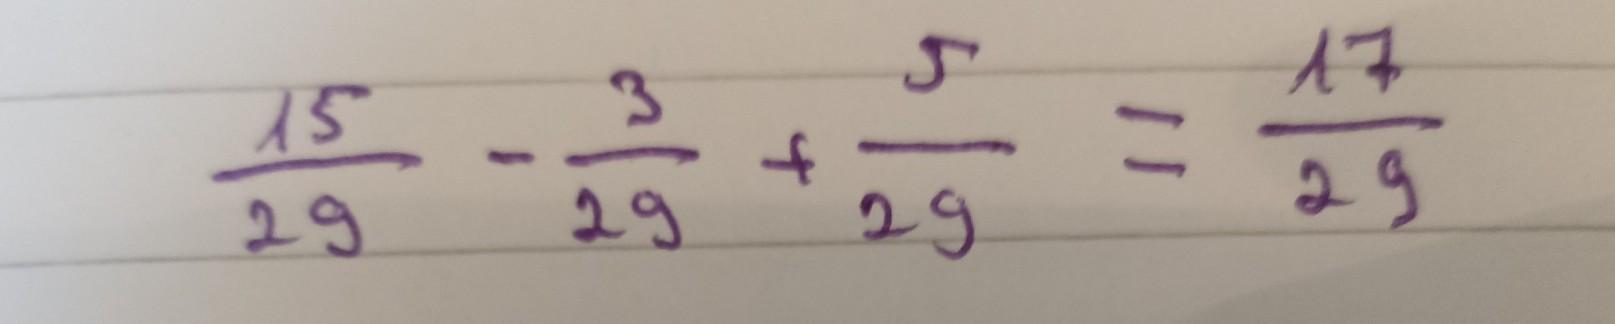 15/29 - 3/29 + 5/29 = 17/29